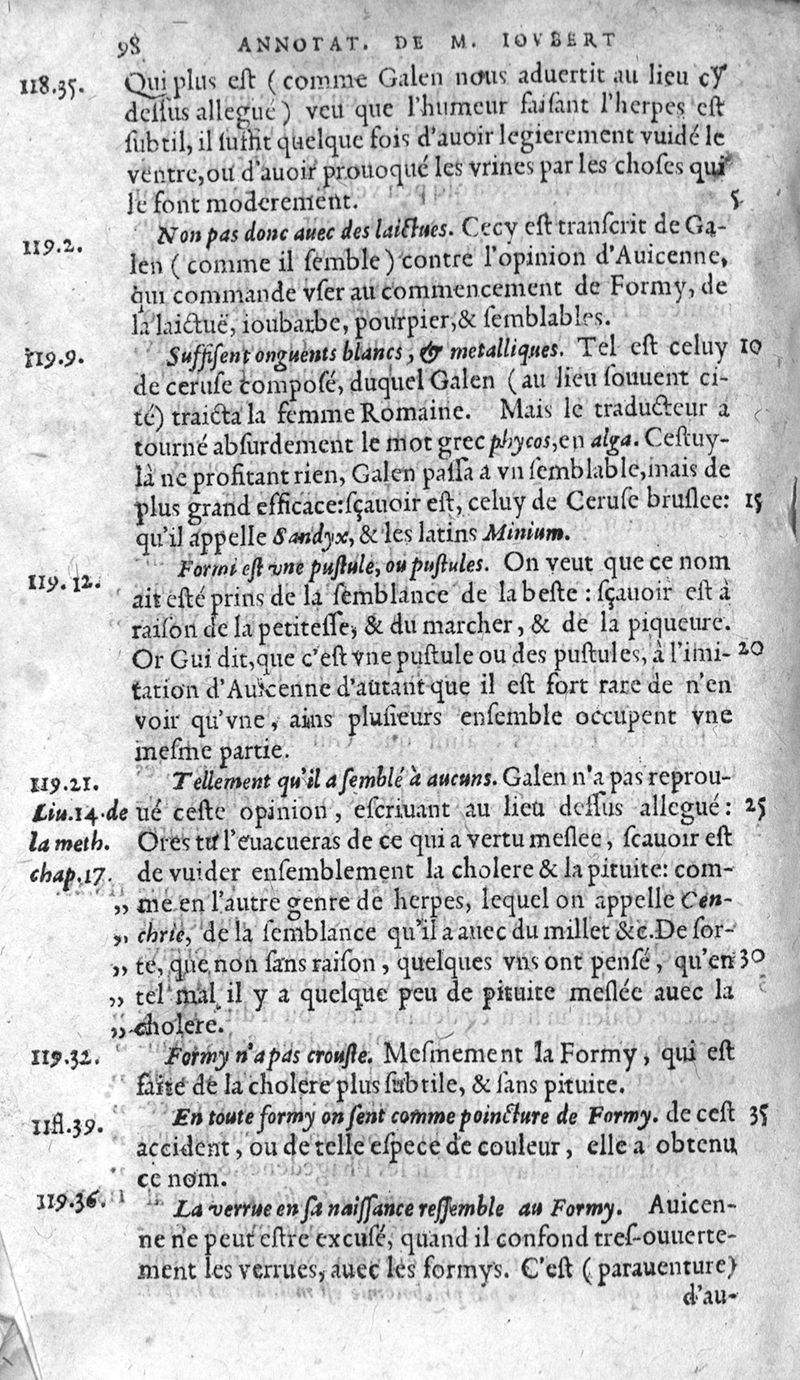 98 ANNOTAT. DE M. IOVBERT
118.35. Qui plus eſt (comme Galen nous aduertit au lieu cy
deſſus allegué) veu que l'humeur faiſant l'herpes eſt
ſubtil, il ſuffit quelque fois d'auoir legierement vuidé le
ventre, ou d'auoir prouoqué les vrines par les choſes qui
le font moderement. 5
119.2. Non pas donc auec des laictues. Cecy eſt tranſcrit de Ga-
len (comme il ſemble) contre l'opinion d'Auicenne,
qui commande vſer au commencement de Formy, de
la laictuë, ioubarbe, pourpier, & ſemblables.
119.9. Suffiſent onguents blancs, & metalliques. Tel eſt celuy 10
de ceruſe compoſé, duquel Galen (au lieu ſouuent ci-
té) traicta la femme Romaine. Mais le traducteur a
tourné abſurdement le mot grec phycos, en alga. Ceſtuy-
là ne profitant rien, Galen paſſa a vn ſemblable, mais de
plus grand efficace: ſçauoir eſt, celuy de Ceruſe bruſlee: 15
qu'il appelle Sandyx, & les latins Minium.
119.12. Formi eſt vne puſtule, ou puſtules. On veut que ce nom
ait eſté prins de la ſemblance de la beſte : ſçauoir eſt à
raiſon de la petiteſſe, & du marcher, & de la piqueure.
Or Gui dit, que c'eſt vne puſtule ou des puſtules, à l'imi- 20
tation d'Auicenne d'autant que il eſt fort rare de n'en
voir qu'vne, ains pluſieurs enſemble occupent vne
meſme partie.
119.21. Tellement qu'il a ſemblé à aucuns. Galen n'a pas reprou-
Liu.14.de ué ceſte opinion, eſcriuant au lieu deſſus allegué: 25
la meth. Ores tu l'euacueras de ce qui a vertu meſlee, ſcauoir eſt
chap.17. de vuider enſemblement la cholere & la pituite: com-
„ me en l'autre genre de herpes, lequel on appelle Cen-
„ chrie, de la ſemblance qu'il a auec du millet &c. De ſor-
„ te, que non ſans raiſon, quelques vns ont penſé, qu'en 30
„ tel mal il y a quelque peu de pituite meſlée auec la
„ cholere.
119.32. Formy n'a pas crouſte. Meſmement la Formy, qui eſt
faite de la cholere plus ſubtile, & ſans pituite.
11fl.39. En toute formy on ſent comme poincture de Formy. de ceſt 35
accident, ou de telle eſpece de couleur, elle a obtenu
ce nom.
119.36. La verrue en ſa naiſſance reſſemble au Formy. Auicen-
ne ne peut eſtre excuſé, quand il confond treſ-ouuerte-
ment les verrues, auec les formys. C'eſt (parauenture)
d'au-